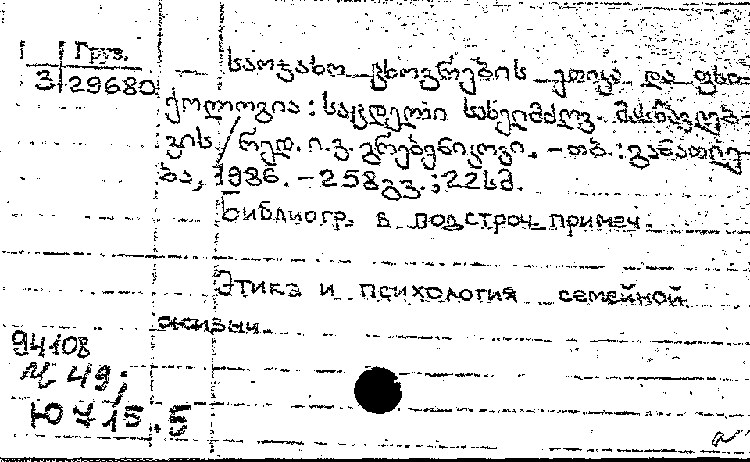 Груз.
3 29680
საოჯახო ცხოვრების ეთიკა და ფსი-
ქოლოგია : საცდელი სახელმძღვ. მასწავლებ-
ვის / რედ. ი. ვ. გრებენიკოვი. – თბ. : განათლე-
ბა, 1986. – 258გვ. ; 22სმ.
Библиогр. в подстроч. примеч.
Этика и психология семейной
жизни.
94108
Ч 49;
Ю 715.5